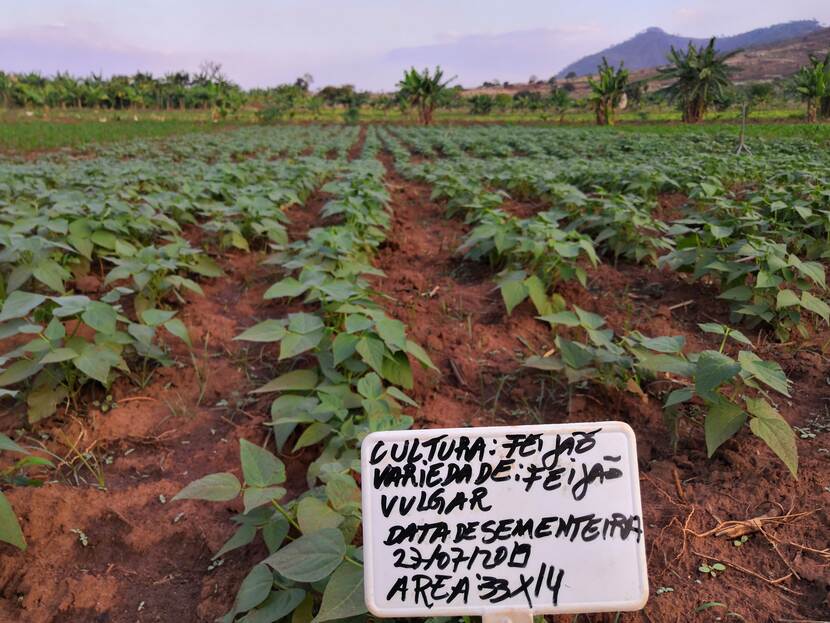 CULTURA: FEIJÃO
VARIEDADE: FEIJÃO
VULGAR
DATA DE SEMENTEIRA
27/07/2019
AREA: 33X14